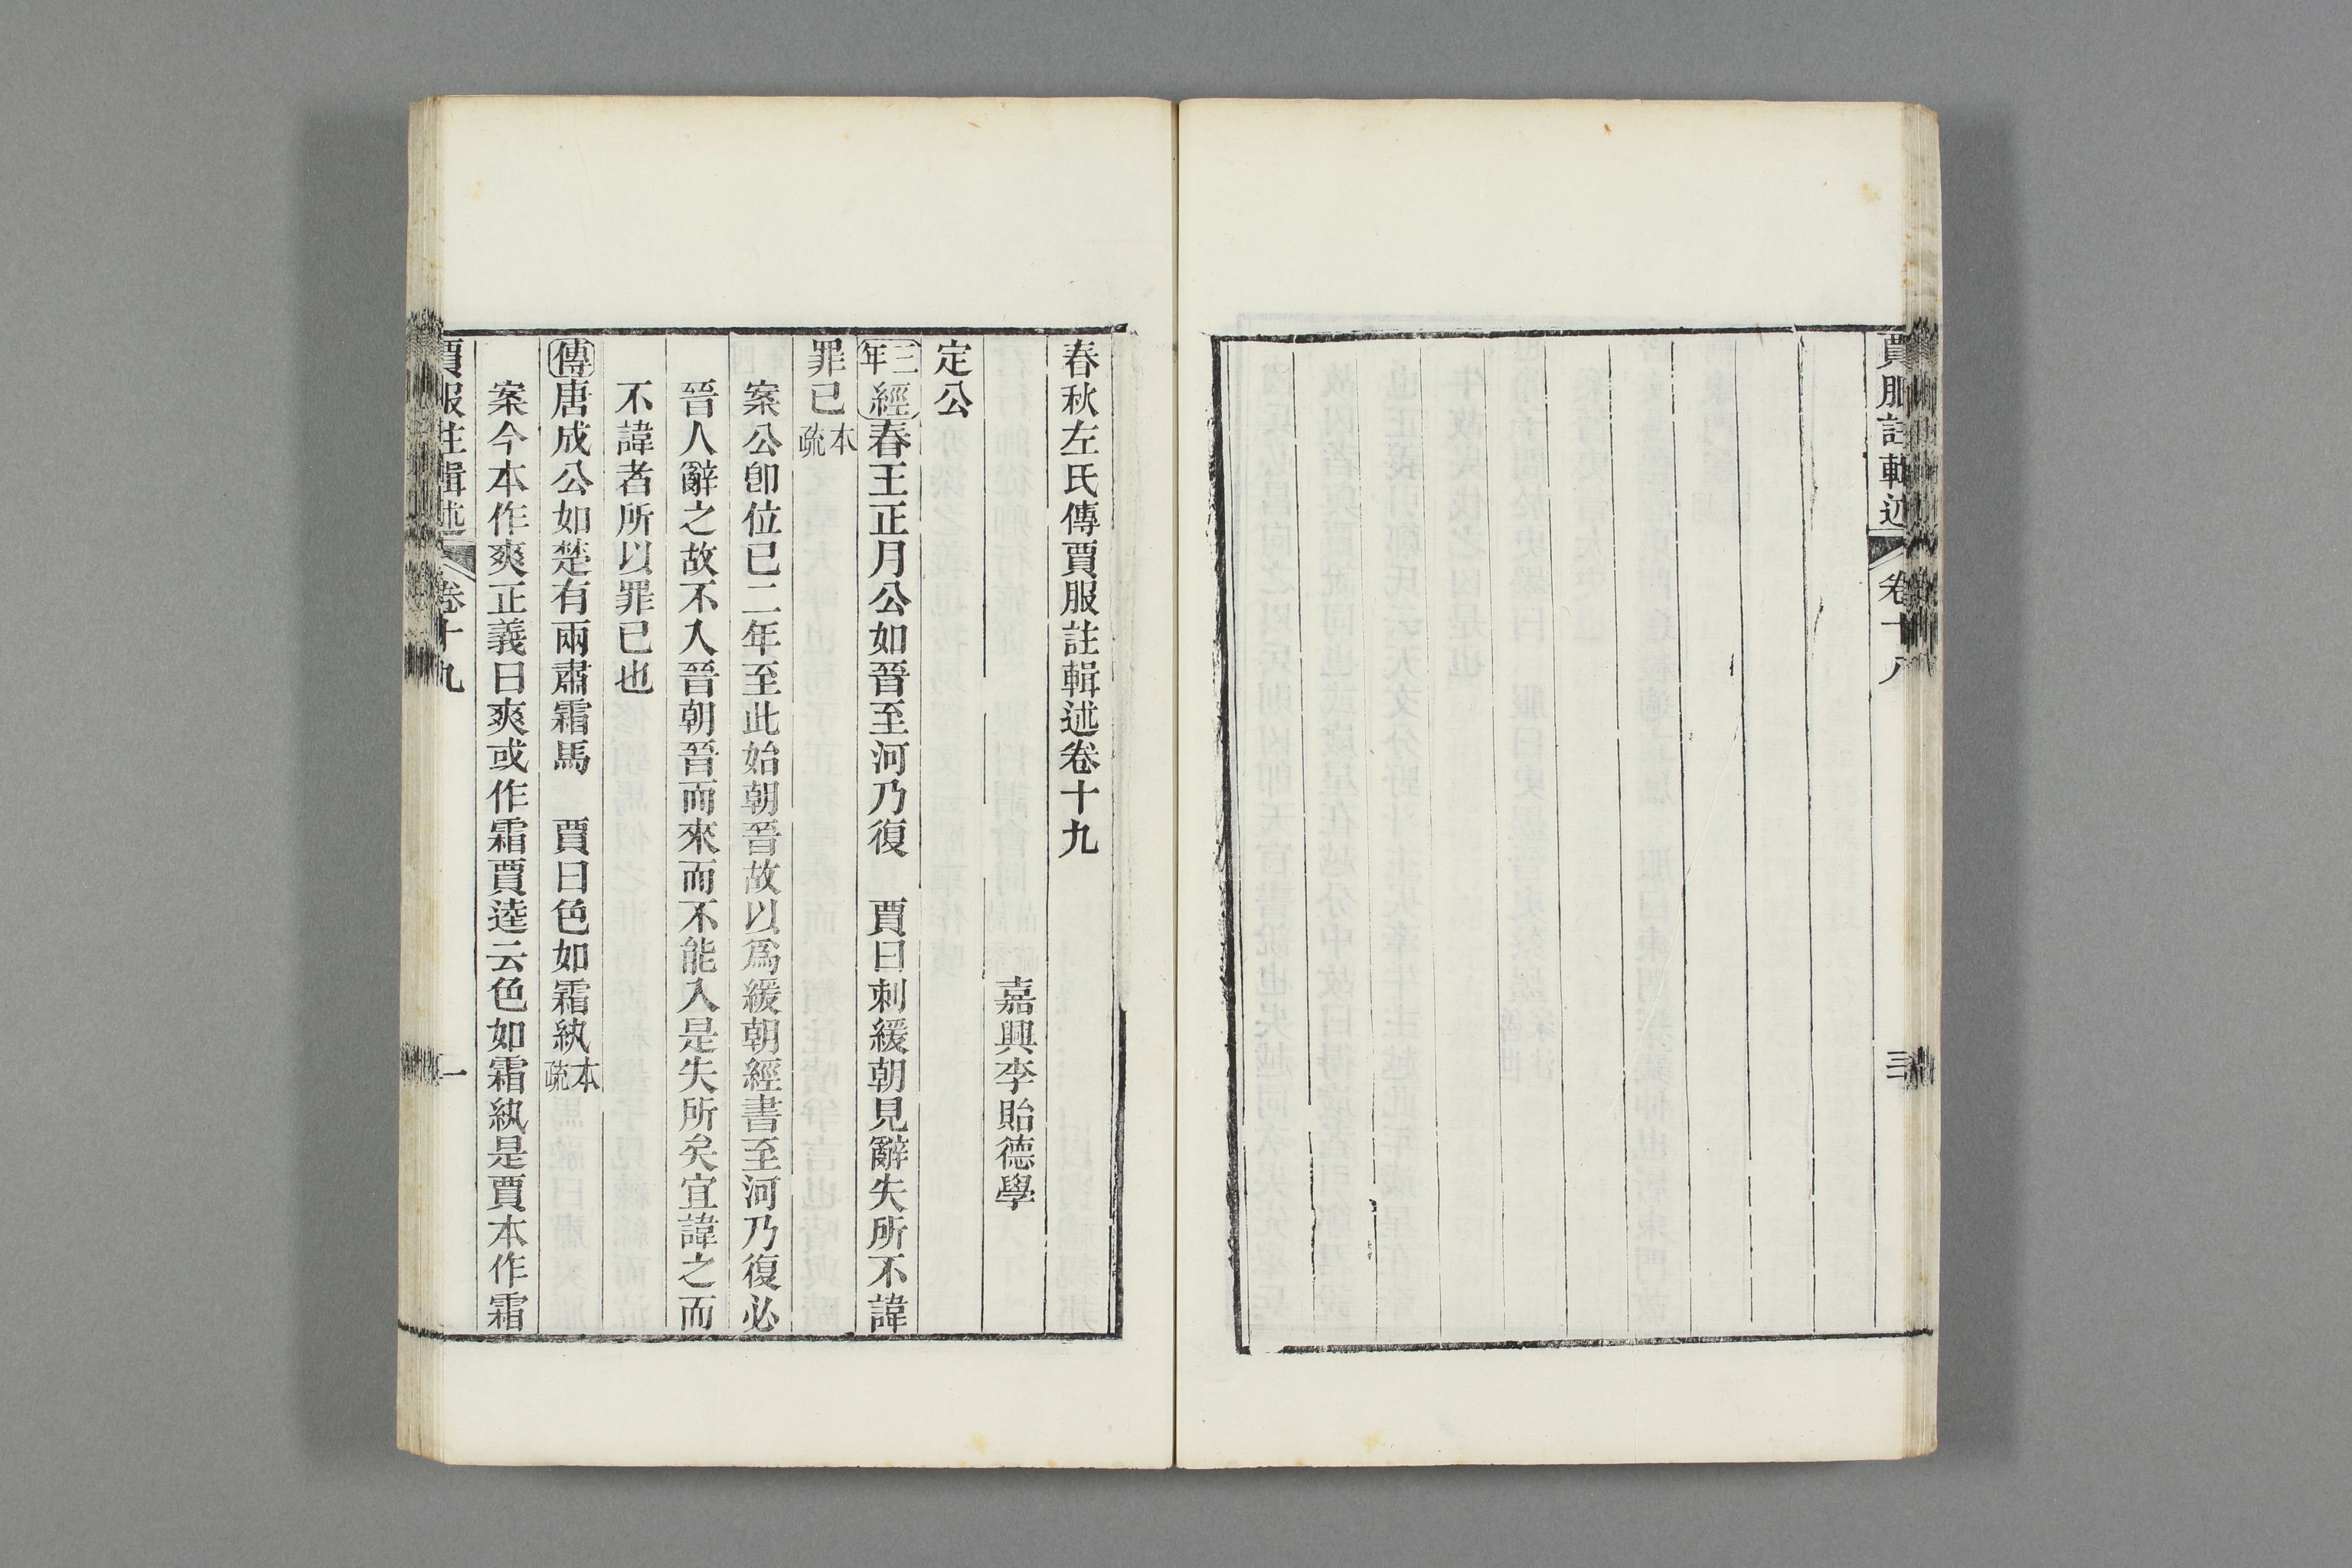 賈服註輯述 卷十八 三
春秋左氏傳賈服註輯述卷十九
嘉興李貽德學
定公
三年經春王正月公如晉至河乃復 賈曰刺緩朝見辭失所不諱
罪已本疏
案公卽位已二年至此始朝晉故以爲緩朝經書至河乃復必
晉人辭之故不入晉朝晉而來而不能入是失所矣宜諱之而
不諱者所以罪已也
傳唐成公如楚有兩肅霜馬 賈曰色如霜紈本疏
案今本作爽正義曰爽或作霜賈逵云色如霜紈是賈本作霜
賈服註輯述 卷十九 一